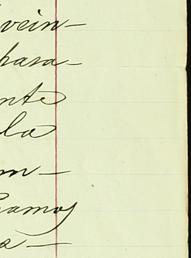 vein-
pasa-
ente
la
m-
Ramos
a-